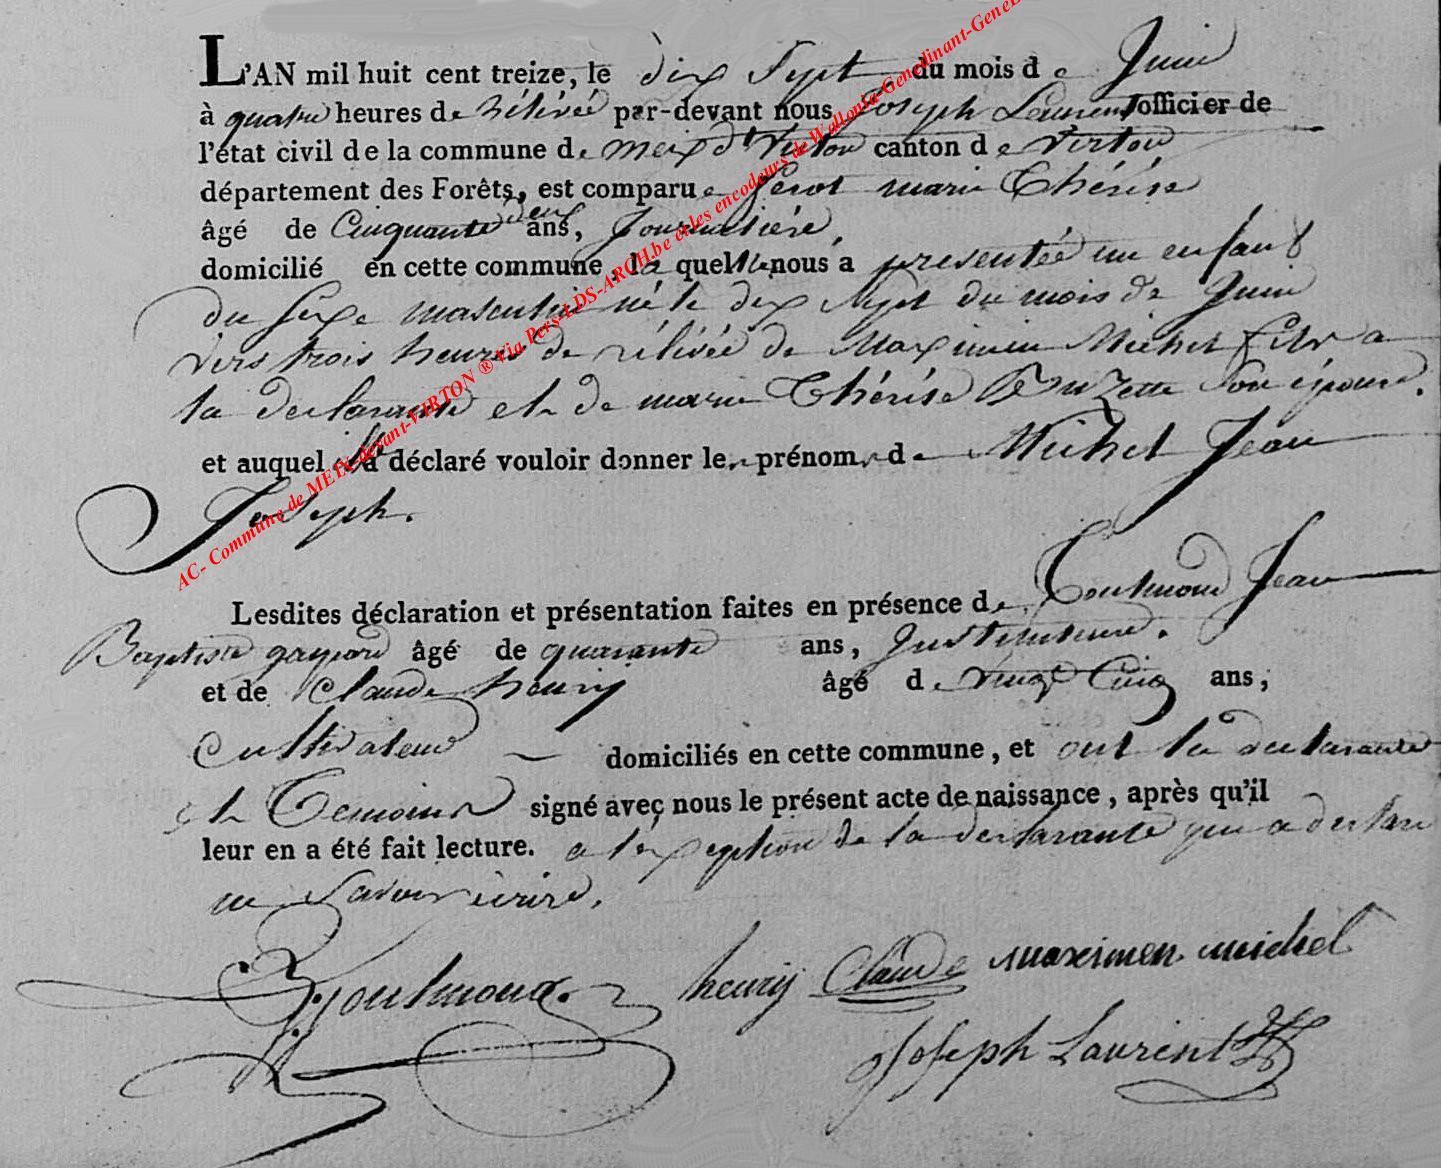 L'AN mil huit cent treize, le dix Sept du mois de Juin
à quatre heures de rélévée par-devant nous Joseph Laurent officier de
l'état civil de la commune de meix dt Virton canton de Virton
département des Forêts, est comparue marie Thérése
âgé de Cinquante deux ans, Journaliére,
domicilié en cette commune, la quelle nous a presentée un enfant
du sexe masculin né le dix Sept du mois de Juin
vers trois heures de rélévée de Maximin Michel fils a
la declarante et de marie Thérése son épouse.
et auquel elle a déclaré vouloir donner les prénoms de Michel Jean
Joseph.
Lesdites déclaration et présentation faites en présence de Toulmond Jean
Baptiste gaspard âgé de quarante ans, Instituteur.
et de Claude henry âgé de vingt Cinq ans,
Cultivateur domiciliés en cette commune, et ont la declarante
et Temoins signé avec nous le présent acte de naissance, après qu'il
leur en a été fait lecture. a l'exception de la declarante qui a declaré
ne savoir écrire.
Toulmond. henry Claude maximen michel
Joseph Laurent
AC- Commune de MEIX-devant-VIRTON ® Via Pers-LDS-ARCH.be et les encodeurs de Wallonia-Genedinant-GeneB